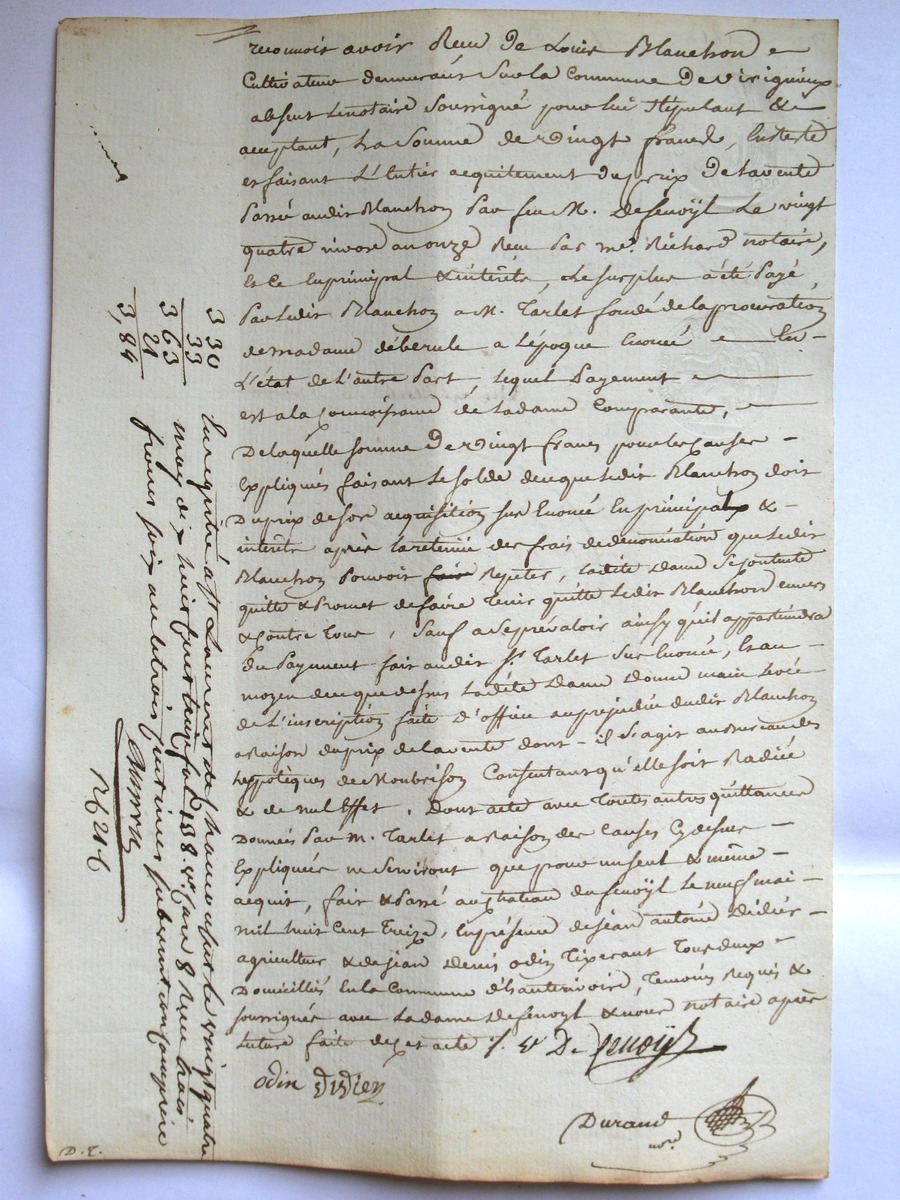 reconnois avoir Recu De Louis Blanchon
Cultivateur demeurant Sur la Commune De virigneux
absent Lenotaire Soussigné pour lui Stipulant &
acceptant, La Somme de vingt francs, luresté
et faisant L'entier acquitement du prix De la vente
Passé audit Blanchon Par feu M. Defenoÿl Le vingt
quatre nivose an onze Recu Par me. Richard notaire,
Et Ce En principal & intérêts, Le Surplus a été Payé
Par Ledit Blanchon a M. Tarlet fondé de la procuration
de madame déberule a L'époque Enoncé En
L'état de L'autre Part, lequel Payement
est a la connoissance de Ladame Comparante,
De laquelle somme De vingt francs pour les Causes
Expliqués faisant Le Solde de ce que Ledit Blanchon doit
Du prix de son acquisition sus Enoncé En principal &
intérêts après la retenue des frais de dénonciation que Ledit
Blanchon Pouvoit fair Repeter, Ladite Dame Se contente
quitte & Promet de faire Tenir quitte Ledit Blanchon envers
& contre Tous, Sauf a Se prévaloir ainsy qu'il appartiendra
Du Payement fait audit Sr. Tarlet Sus Enoncé, & au
moyen de ce que dessus Ladite Dame Donne main Levée
de L'inscription faite D'office au préjudice dudit Blanchon
a Raison du prix de la vente dont il S'agit au Bureau des
heppotèques de Monbrison Consentant qu'elle soit Radiée
& de nul Effet. Dont acte avec Toutes autres quittances
Donnés Par M. Tarlet a Raison des Causes Cy dessus
Expliquées ne Serviront que pour un seul & même
acquit, fait & Passé au chateau du fenoÿl Le neuf mai
mil huit Cent Treize, En présence de Jean antoine Didier
agriculteur & de Jean Denis odin Tixerant Tous deux
Domiciliés En la Commune d'hauterivoire, Temoins Requis &
soussignés avec Ladame Defenoyl & nous notaire après
Lecture faite de ces acte
De fenoÿl
odin Didier
Durand
nore
D. T.
3 30
33
3 63
21
3,84
Enregistré à St Laurent de Chamousset le vingt quatre
may dix huit cent treize fol. 158. vo. Case 8 Recu trois
francs soix ante trois centimes subvention comprise